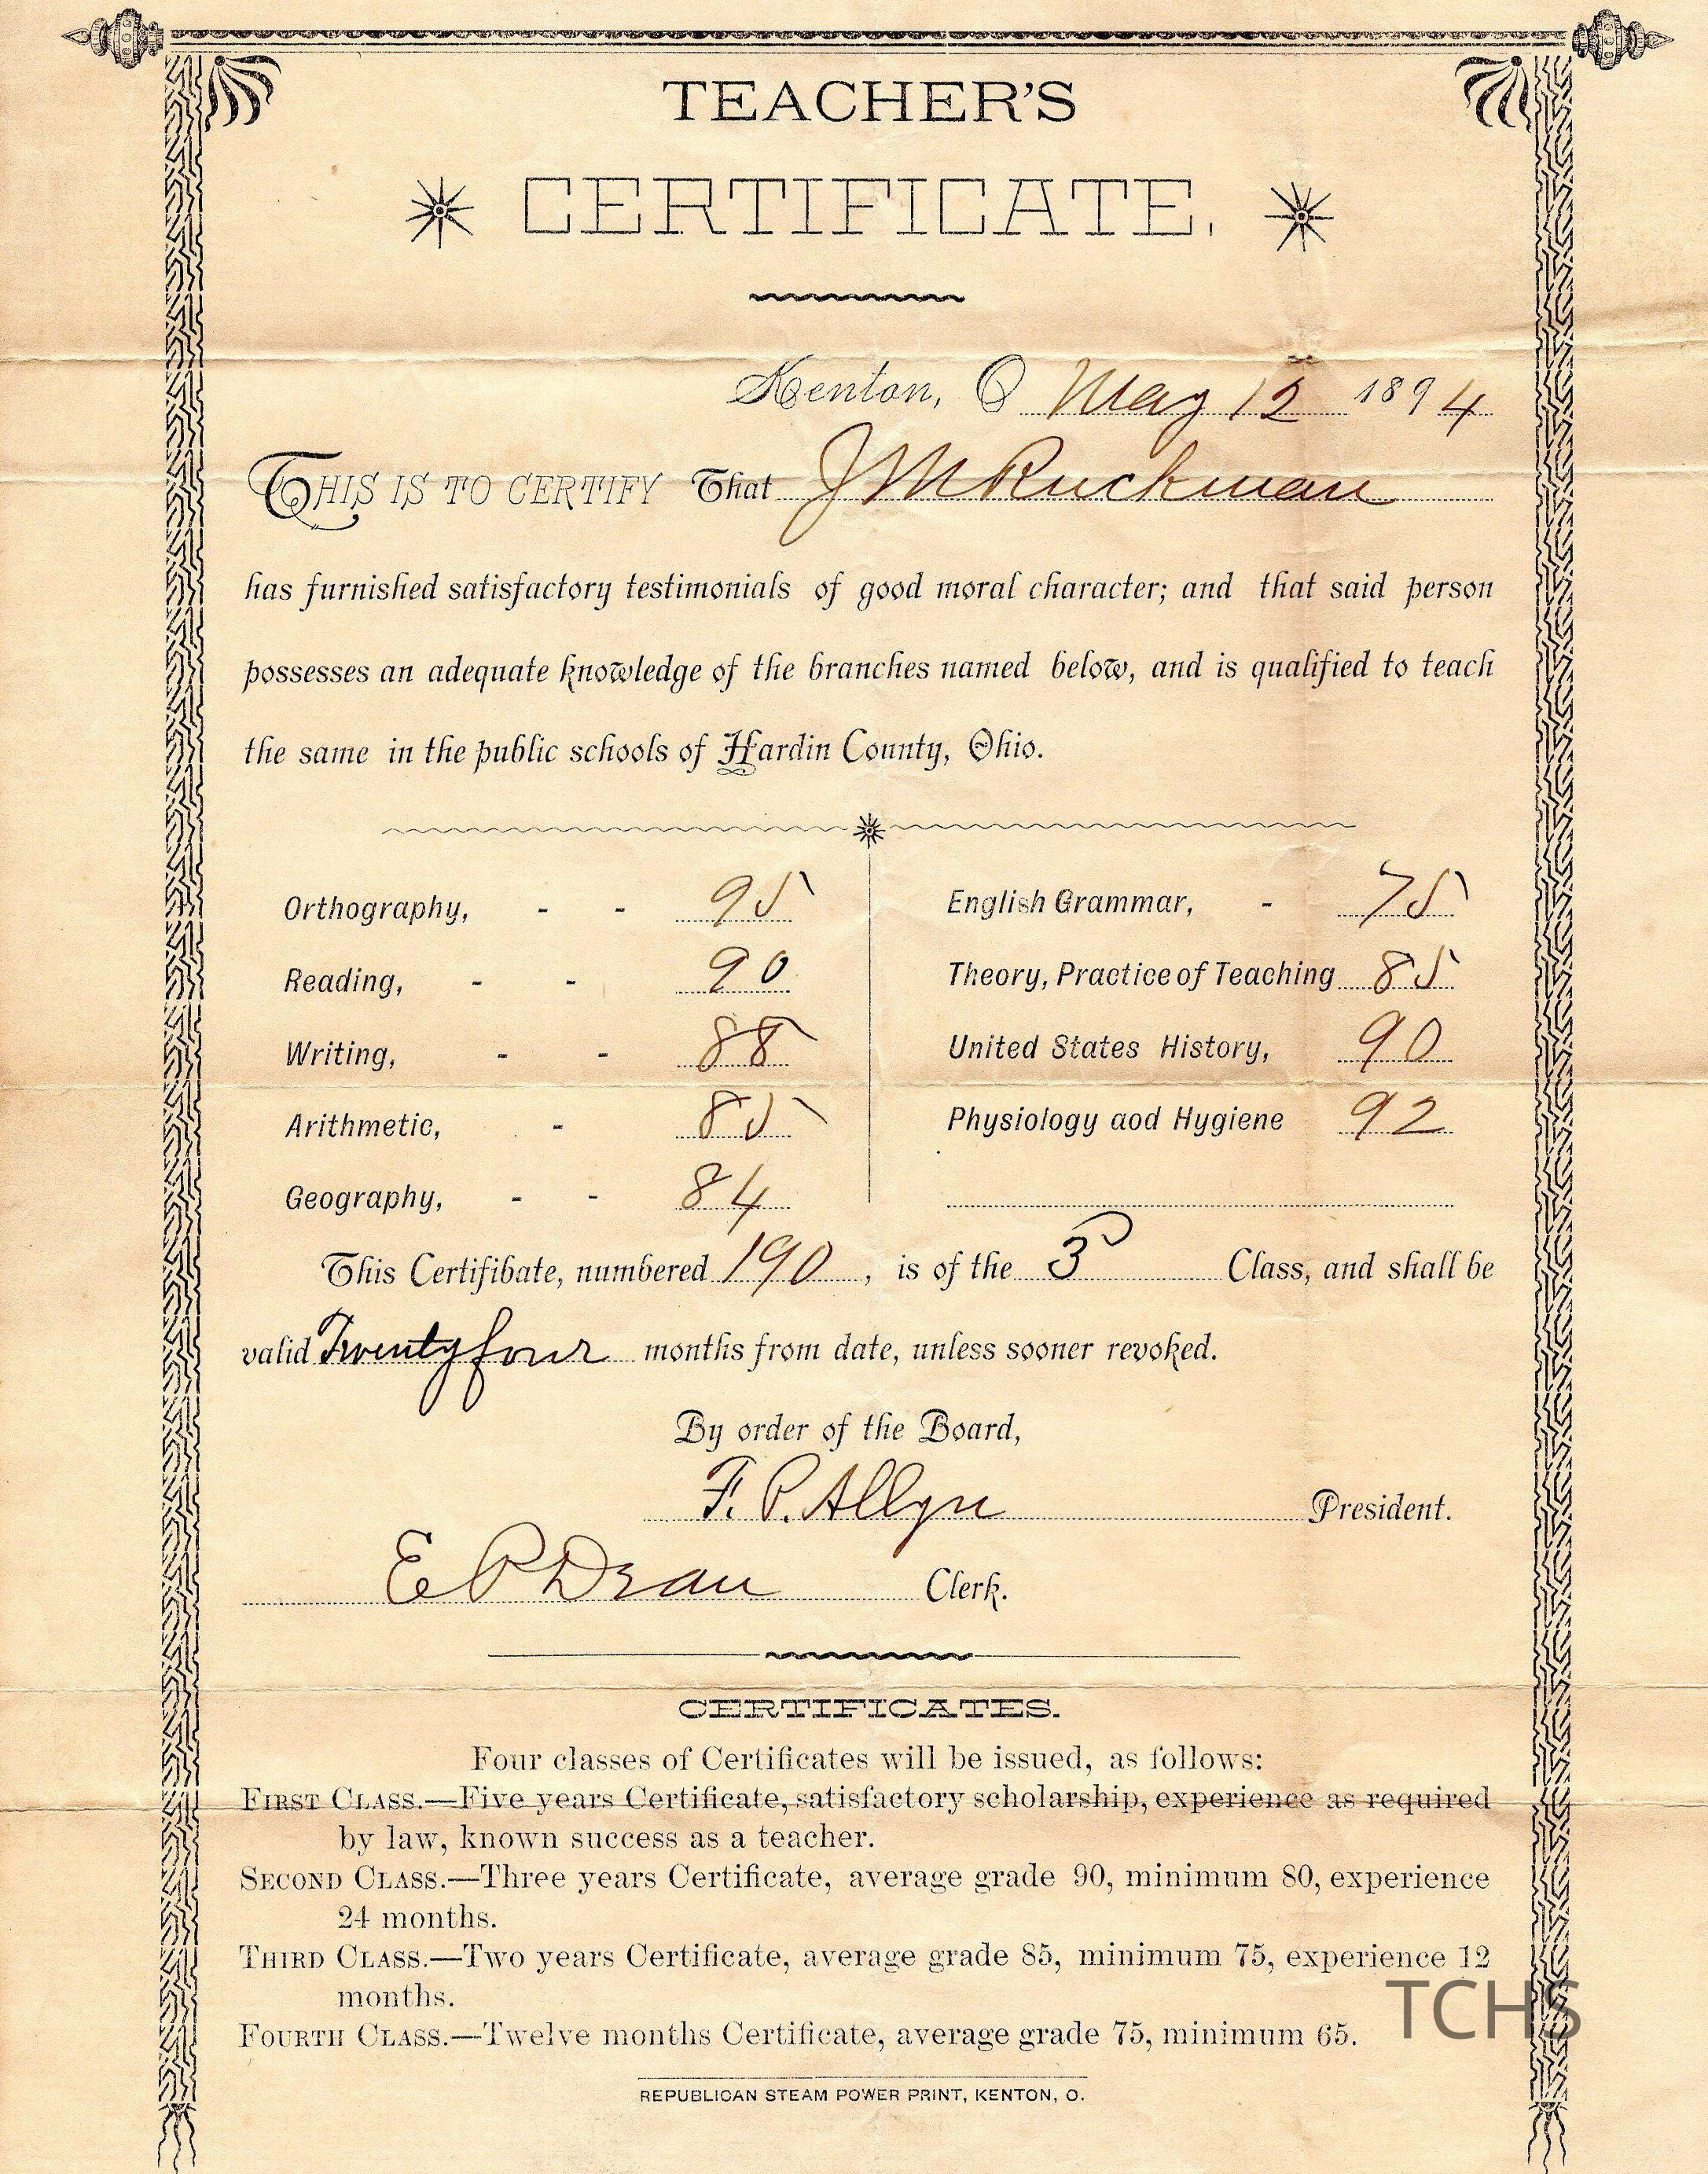 TEACHER'S
CERTIFICATE.
Kenton, O May 12 1894
THIS IS TO CERTIFY That J M Ruckman
has furnished satisfactory testimonials of good moral character; and that said person
possesses an adequate knowledge of the branches named below, and is qualified to teach
the same in the public schools of Hardin County, Ohio.
Orthography, - - 95
Reading, - - 90
Writing, - - 88
Arithmetic, - 85
Geography, - - 84
English Grammar, - 75
Theory, Practice of Teaching 85
United States History, 90
Physiology aod Hygiene 92
This Certifibate, numbered 190, is of the 3 Class, and shall be
valid Twenty four months from date, unless sooner revoked.
By order of the Board,
F. P. Allyn President.
E P Dean Clerk.
CERTIFICATES.
Four classes of Certificates will be issued, as follows:
FIRST CLASS.—Five years Certificate, satisfactory scholarship, experience as required
by law, known success as a teacher.
SECOND CLASS.—Three years Certificate, average grade 90, minimum 80, experience
24 months.
THIRD CLASS.—Two years Certificate, average grade 85, minimum 75, experience 12
months.
FOURTH CLASS.—Twelve months Certificate, average grade 75, minimum 65.
TCHS
REPUBLICAN STEAM POWER PRINT, KENTON, O.